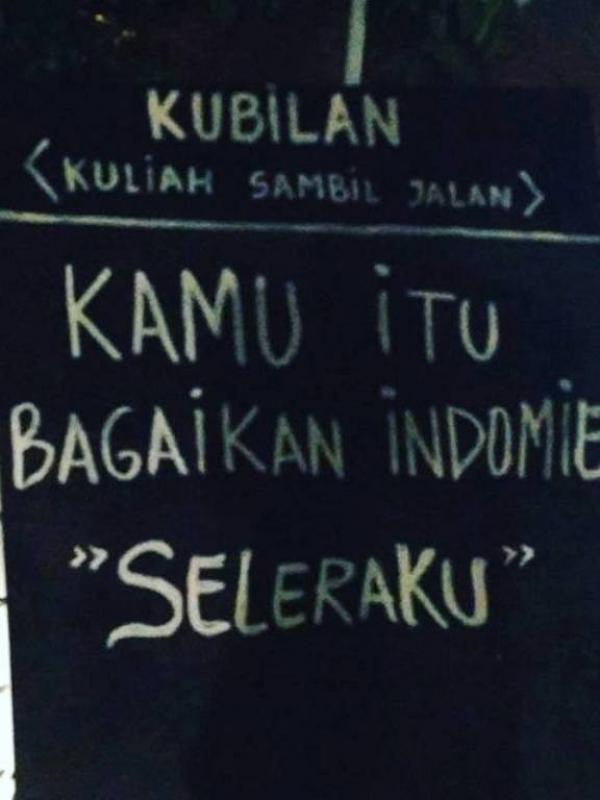 KUBiLAN
<KULiAH SAMBiL JALAN>
KAMU iTU
BAGAiKAN iNDOMiE
"SELERAKU"